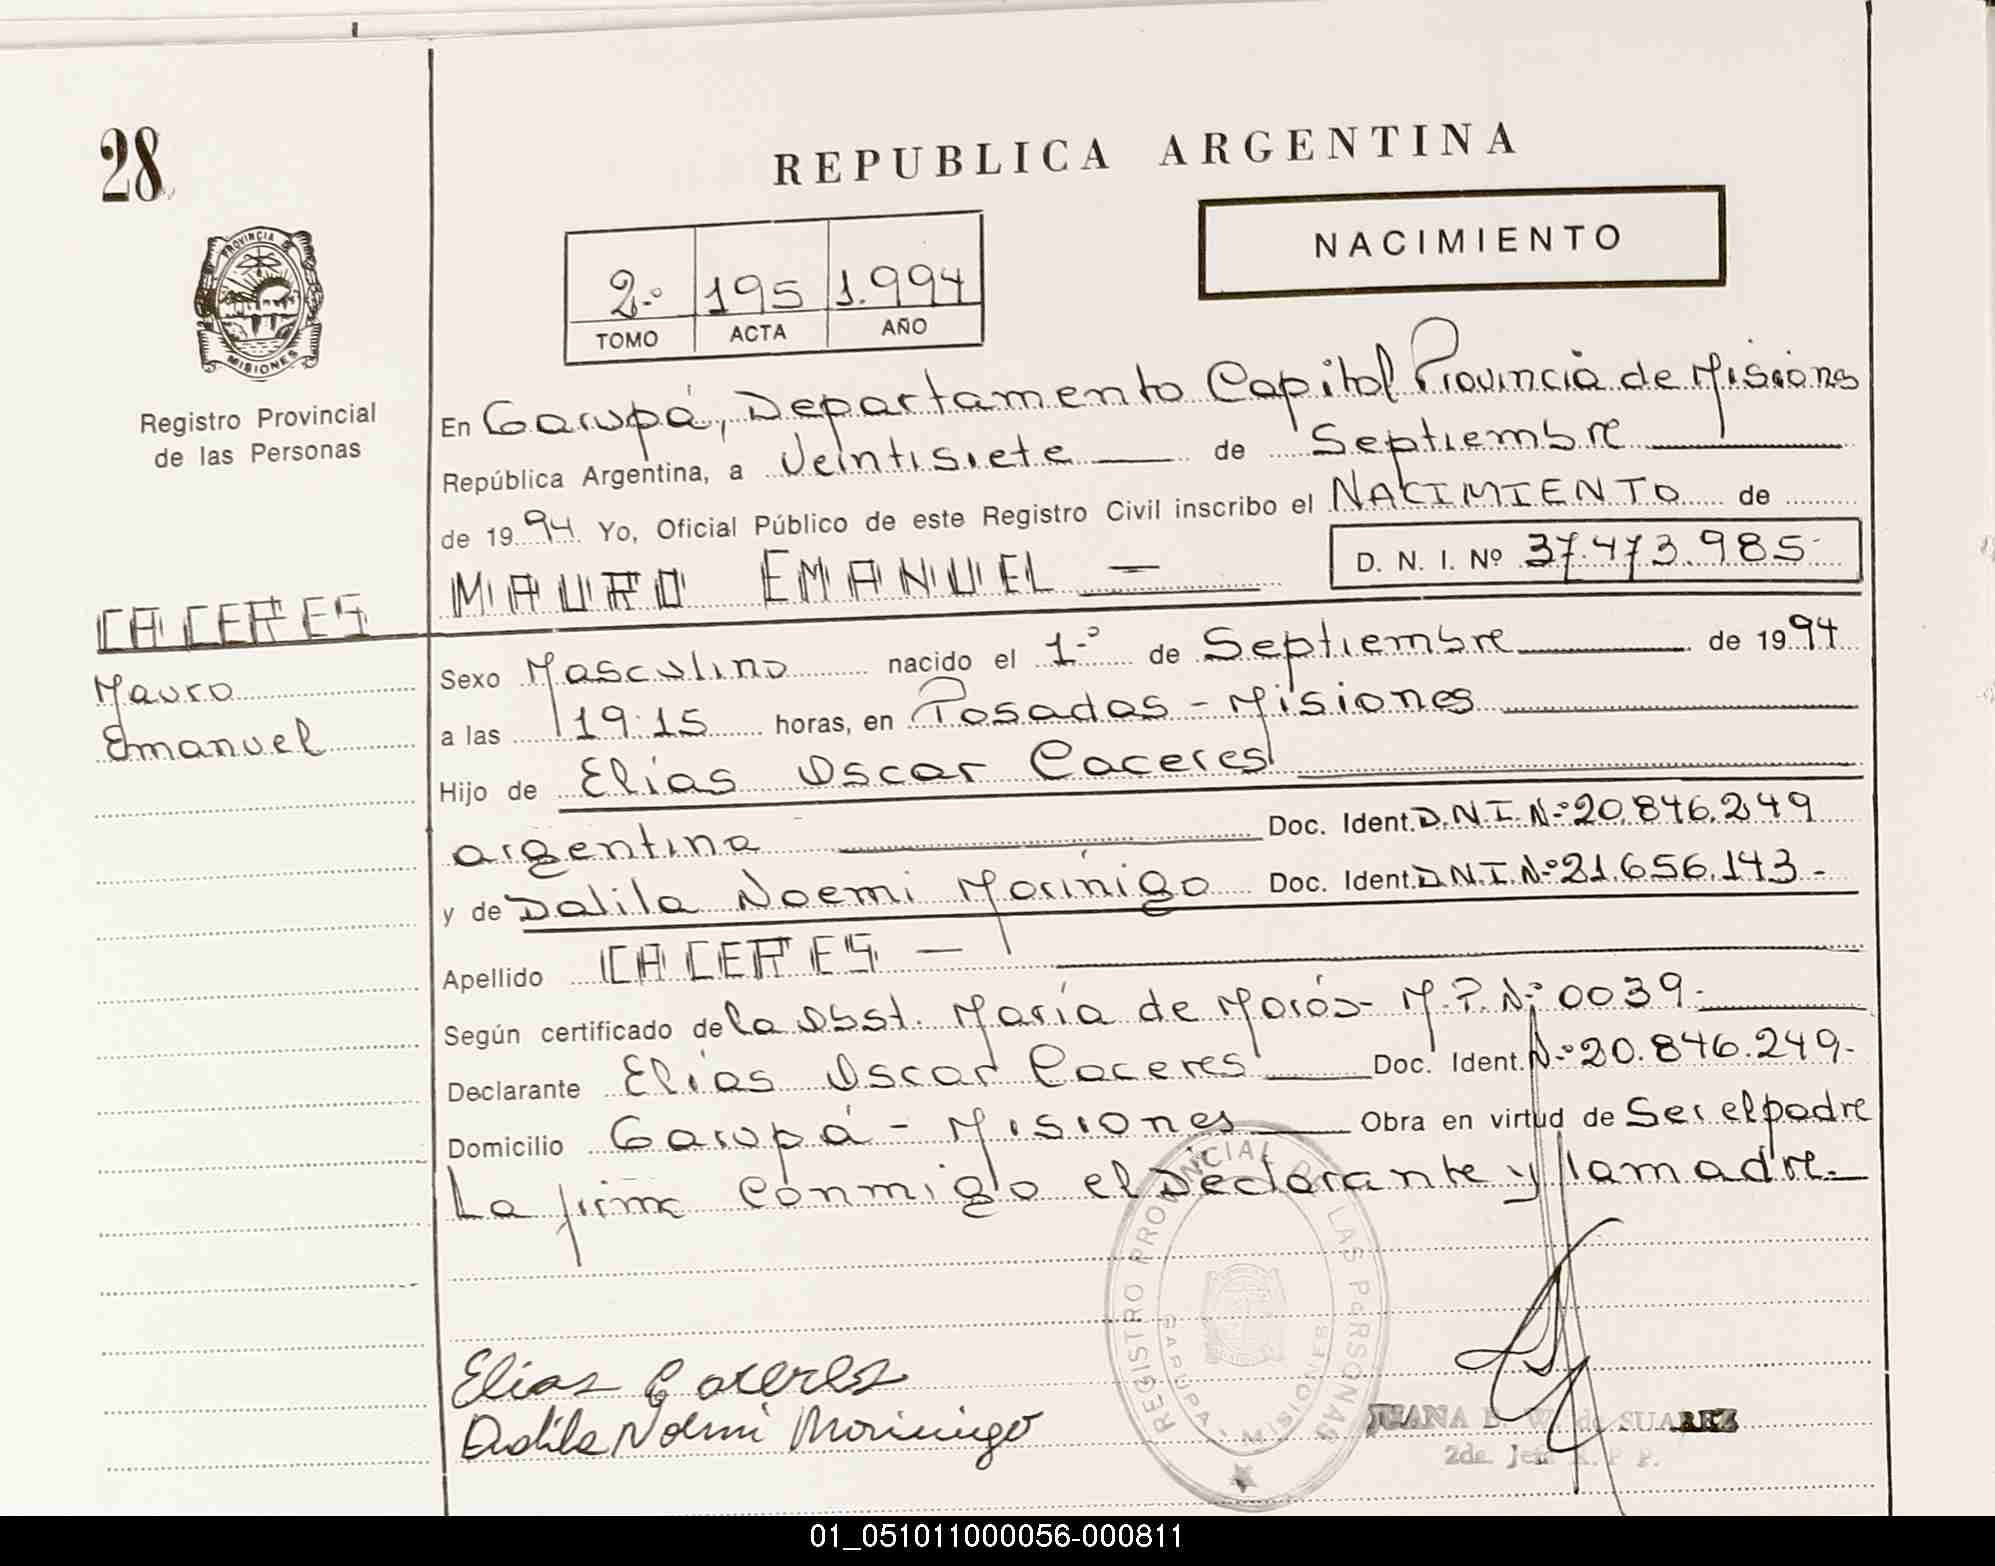 28
REPUBLICA ARGENTINA
PROVINCIA DE
MISIONES
Registro Provincial
de las Personas
2.º 195 1.994
TOMO ACTA AÑO
NACIMIENTO
En Garupá, Departamento Capital Provincia de Misiones
República Argentina, a Veintisiete de Septiembre
de 1994 Yo, Oficial Público de este Registro Civil inscribo el NACIMIENTO de
MAURO EMANUEL — D. N. I. Nº 37.473.985-
CACERES
Mauro
Emanuel
Sexo Masculino nacido el 1.º de Septiembre de 1994
a las 19:15 horas, en Posadas - Misiones
Hijo de Elias Oscar Caceres
argentina Doc. Ident. D.N.I. N.º 20.846.249
y de Dalila Noemi Morinigo Doc. Ident. D.N.I. N.º 21.656.143-
Apellido CACERES —
Según certificado de la Obst. María de Morós - M.P. N.º 0039-
Declarante Elias Oscar Caceres Doc. Ident. N.º 20.846.249-
Domicilio Garupá - Misiones Obra en virtud de Ser el padre
La firma conmigo el Declarante y la madre.-
REGISTRO PROVINCIAL DE LAS PERSONAS
GARUPA - MISIONES
Elias Caceres
Dalila Noemi Morinigo
JUANA E. W. de SUAREZ
2da. Jefe R. P. P.
01_051011000056-000811